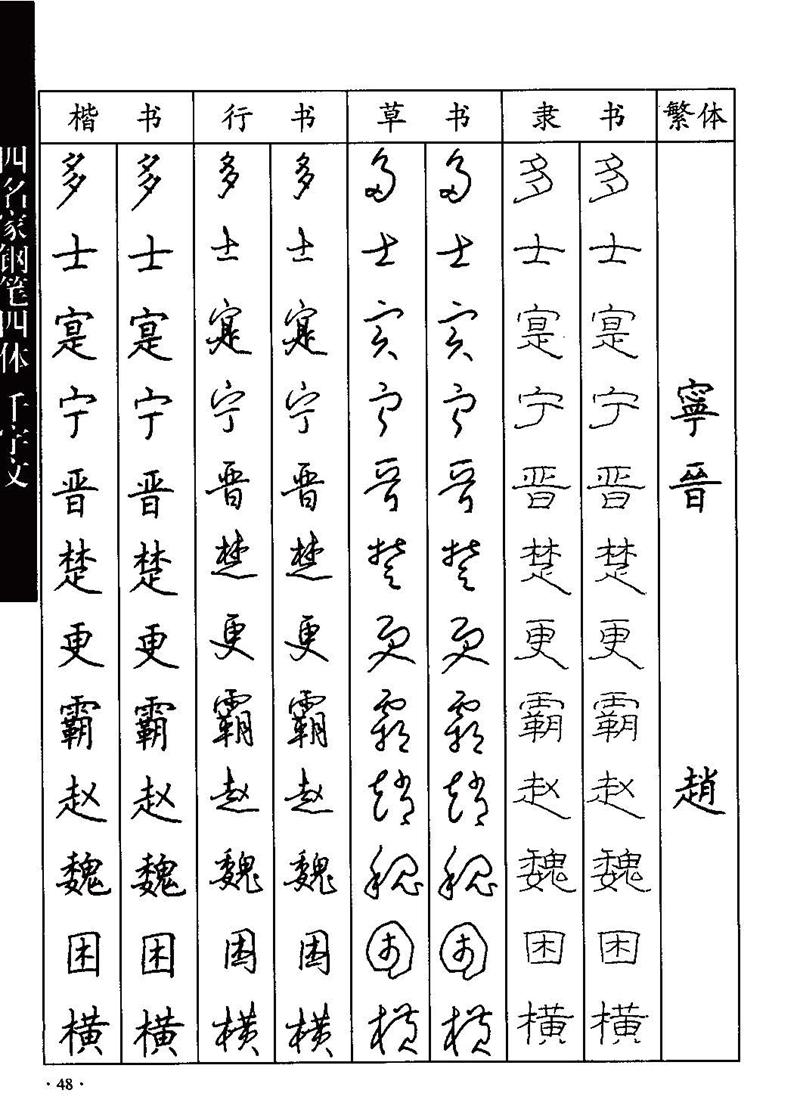 四名家钢笔四体 千字文
楷 书 行 书 草 书 隶 书 繁体
多 多 多 多 多 多 多 多
士 士 士 士 士 士 士 士
寔 寔 寔 寔 寔 寔 寔 寔
宁 宁 宁 宁 宁 宁 宁 宁 寧
晋 晋 晋 晋 晋 晋 晋 晋 晉
楚 楚 楚 楚 楚 楚 楚 楚
更 更 更 更 更 更 更 更
霸 霸 霸 霸 霸 霸 霸 霸
赵 赵 赵 赵 趙 趙 赵 赵 趙
魏 魏 魏 魏 魏 魏 魏 魏
困 困 困 困 困 困 困 困
横 横 横 横 横 横 横 横
·48·